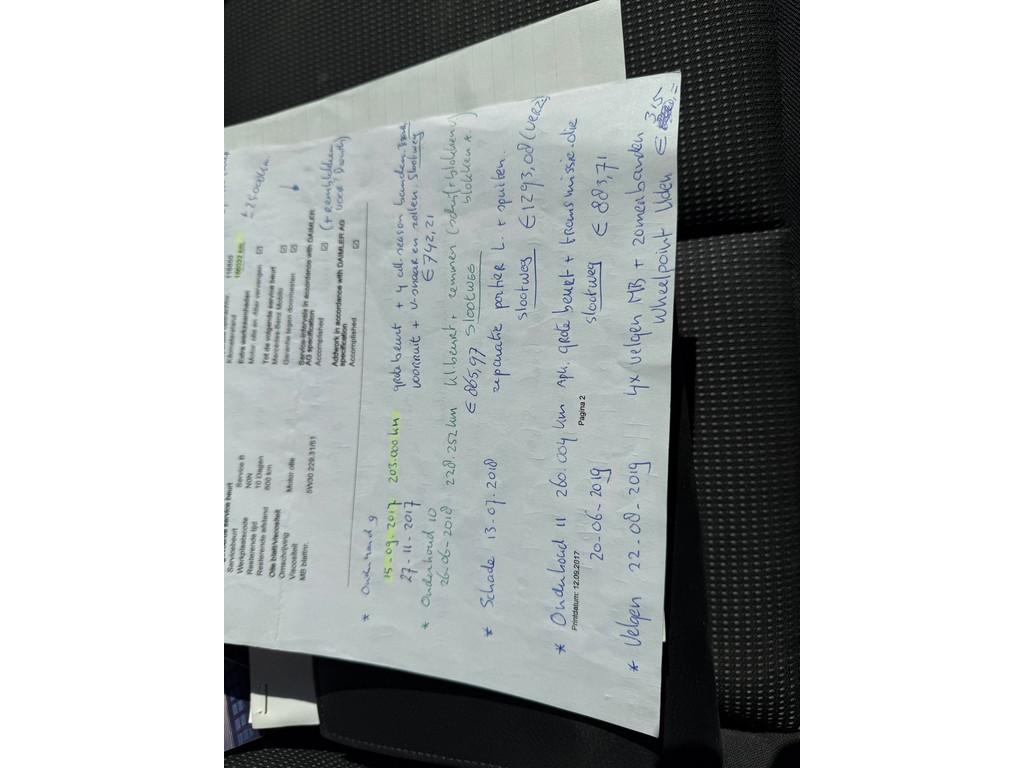 Servicebeurt Service B
Werkplaatscode
Resterende tijd 10 Dagen
Resterende afstand 800 km
Olie blad/Viscositeit
Omschrijving Motor olie
Viscositeit
MB bladnr. 5W30 229.31/51
Kilometerstand
Extra werkzaamheden
Motor: olie en -filter vervangen ☑
Tot de volgende service beurt
Mercedes-Benz Mobilo ☑
Garantie tegen doorroesten ☑
Service-intervals in accordance with DAIMLER AG specification
Accomplished ☑ (+ remblokken voor
Addwork in accordance with DAIMLER AG specification
Accomplished ☑
* Onderhoud 9
15-09-2017 203.000 km grote beurt + 4 all-season banden
27-11-2017 voorruit + v-snaar en rollen. Slootweg
€ 742,21
* Onderhoud 10
26-06-2018 228.252 km kl beurt + remmen (schijf + blokken v
€ 865,97 Slootweg blokken A.)
* Schade 13-07-2018 reparatie portier L. + spuiten.
slootweg € 1293,08 (verz)
* Onderhoud 11 260.004 km Apk. grote beurt + transmissie olie
20-06-2019 slootweg € 883,71
Printdatum: 12.09.2017 Pagina 2
* Velgen 22-08-2019 4x velgen MB + zomerbanden
Wheelpoint Uden €